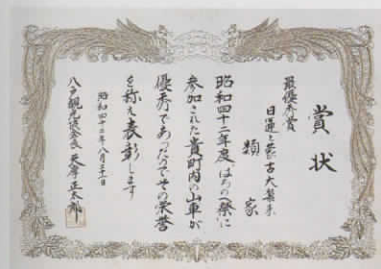 賞状
最優秀賞
日蓮と蒙古大襲来
類家
昭和四十二年度はちのへ祭に
参加された貴町内の山車が
優秀であったのでその栄誉
を称え表彰します
昭和四十二年八月二十一日
八戸観光協会長